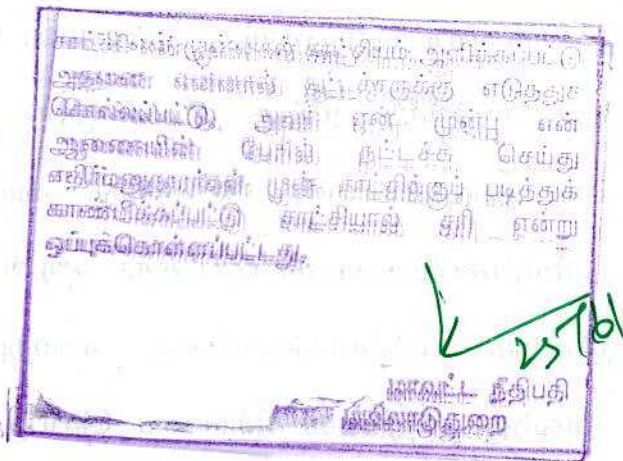 சாட்சியம் அளிக்கப்பட்டு
அதனை என்னால் தட்டச்சருக்கு எடுத்துச்
சொல்லப்பட்டு அவர் என் முன்பு என்
ஆணையின் பேரில் தட்டச்சு செய்து
எதிர்மனுதாரர்கள் முன் சாட்சிக்குப் படித்துக்
காண்பிக்கப்பட்டு சாட்சியால் சரி என்று
ஒப்புக்கொள்ளப்பட்டது.
மாவட்ட நீதிபதி
மயிலாடுதுறை